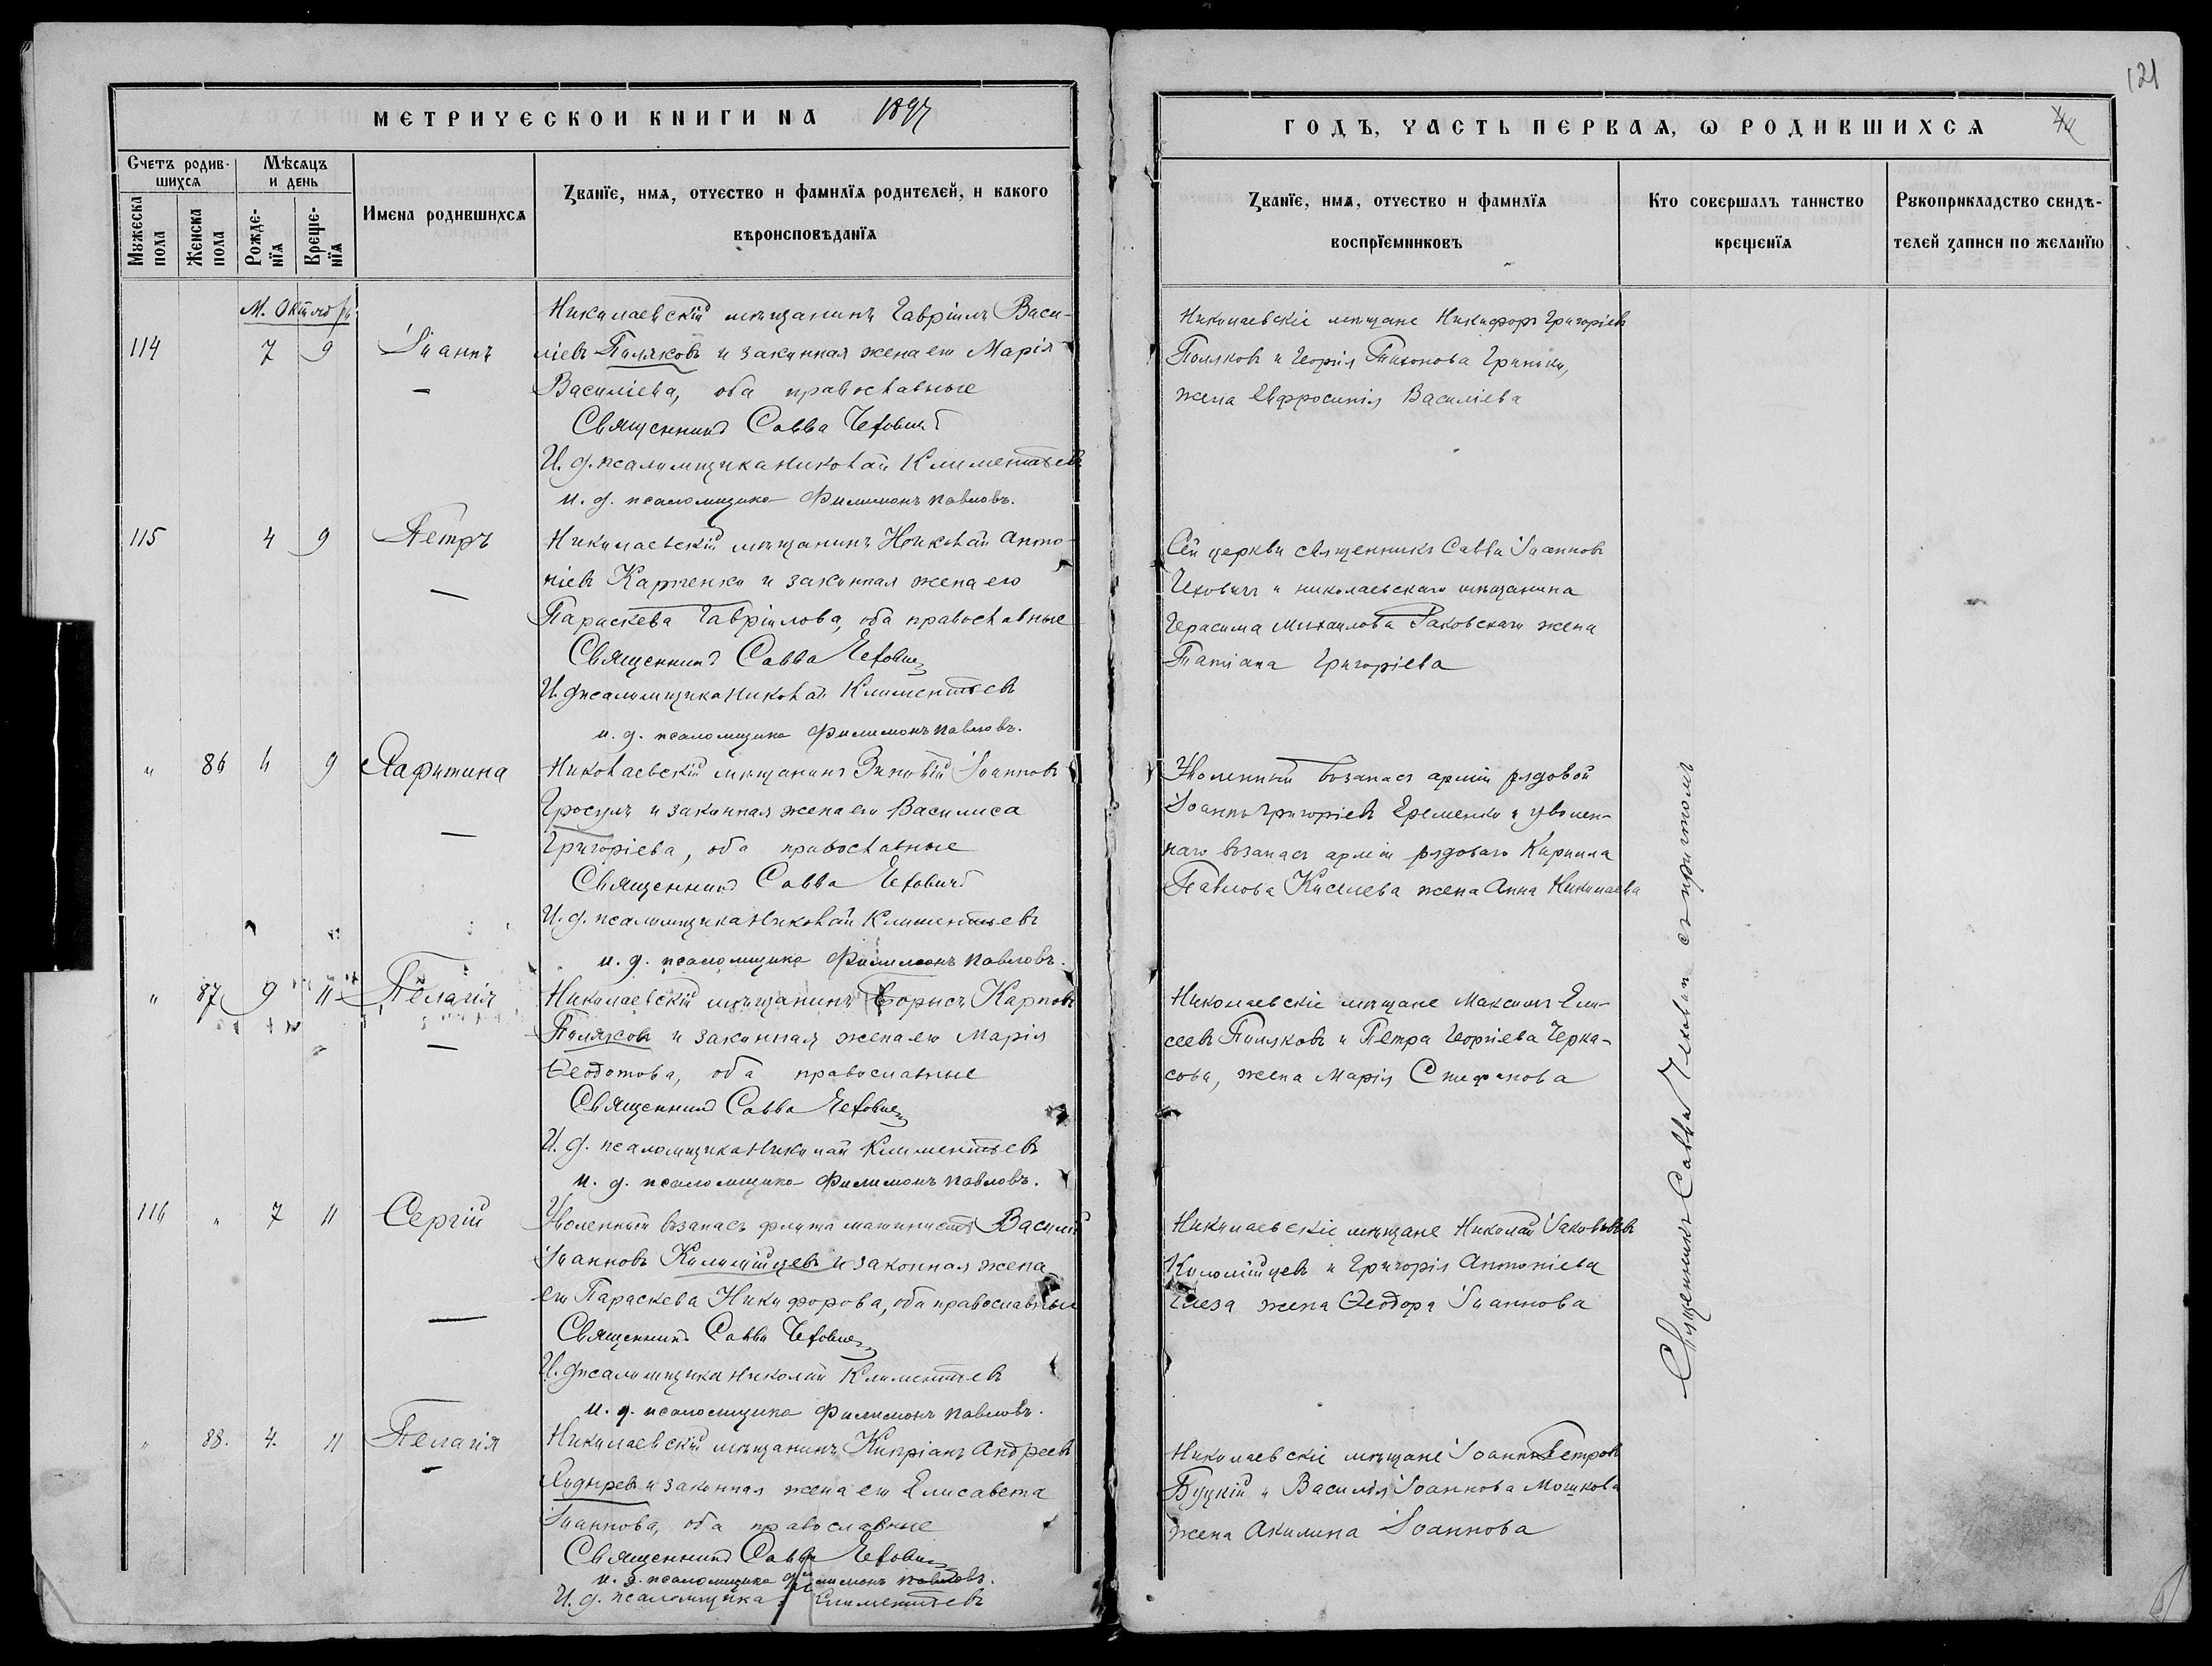 МЕТРИЧЕСКОЙ КНИГИ НА 1897
Счетъ родив-
шихся
Мѣсяцъ
и день
Мужеска
пола
Женска
пола
Рожде-
нія
Креще-
нія
Имена родившихся
Званіе, имя, отчество и фамилія родителей, и какого
вѣроисповѣданія
М. Октябрь
114 7 9 Іоаннъ
Николаевскій мѣщанинъ Гавріилъ Васи-
ліевъ Поляковъ и законная жена его Марія
Василіева, оба православные
Священникъ Савва Чехович
И. д. псаломщика Николай Климентьевъ
и. д. псаломщика Филимонъ Павловъ.
115 4 9 Петръ
Николаевскій мѣщанинъ Николай Анто-
ніевъ Карпенко и законная жена его
Параскева Гавріилова, оба православные
Священникъ Савва Чехович
И. д. псаломщика Николай Климентьевъ
и. д. псаломщика Филимонъ Павловъ.
" 86 9
Николаевскій мѣщанинъ Зиновій Іоанновъ
Гросулъ и законная жена его Василиса
Григоріева, оба православные
Священникъ Савва Чехович
И. д. псаломщика Николай Климентьевъ
и. д. псаломщика Филимонъ Павловъ.
" 87 9 11 Пелагія
Николаевскій мѣщанинъ Борисъ Карповъ
Поляковъ и законная жена его Марія
Ѳеодотова, оба православные
Священникъ Савва Чехович
И. д. псаломщика Николай Климентьевъ
и. д. псаломщика Филимонъ Павловъ.
116 " 7 11 Сергій
Уволенный въ запасъ флота машинистъ Василій
Іоанновъ Коломійцевъ и законная жена
его Параскева Никифорова, оба православные
Священникъ Савва Чехович
И. д. псаломщика Николай Климентьевъ
и. д. псаломщика Филимонъ Павловъ.
" 88. 4. 11 Пелагія
Николаевскій мѣщанинъ Кипріанъ Андреевъ
и законная жена его Елисавета
Іоаннова, оба православные
Священникъ Савва Чехович
и. д. псаломщика Филимонъ Павловъ.
И. д. псаломщика Климентьевъ
121
ГОДЪ, ЧАСТЬ ПЕРВАЯ, О РОДИВШИХСЯ
Званіе, имя, отчество и фамилія
воспріемниковъ
Кто совершалъ таинство
крещенія
Рукоприкладство свидѣ-
телей записи по желанію
Николаевскіе мѣщане Никифоръ Григоріевъ
Поляковъ и Георгія Тихонова
жена Евфросинія Василіева
Сей церкви священникъ Савва Іоанновъ
Чеховичъ и николаевскаго мѣщанина
Герасима Михаилова Раковскаго жена
Татіана Григоріева
Уволенный въ запасъ арміи рядовой
Іоаннъ Григоріевъ Еременко и уволен-
наго въ запасъ арміи рядоваго Кирилла
Павлова Киселева жена Анна Николаева
Николаевскіе мѣщане Максимъ Ели-
сеевъ Поляковъ и Петра Георгіева Черка-
сова, жена Марія Стефанова
Николаевскіе мѣщане Николай Іаковлевъ
Коломійцевъ и Григорія Антоніева
жена Ѳеодора Іоаннова
Николаевскіе мѣщане Іоаннъ Петровъ
Буцкій и Василія Іоаннова Мошкова
жена Акилина Іоаннова
Священникъ Савва Чехович съ причтомъ